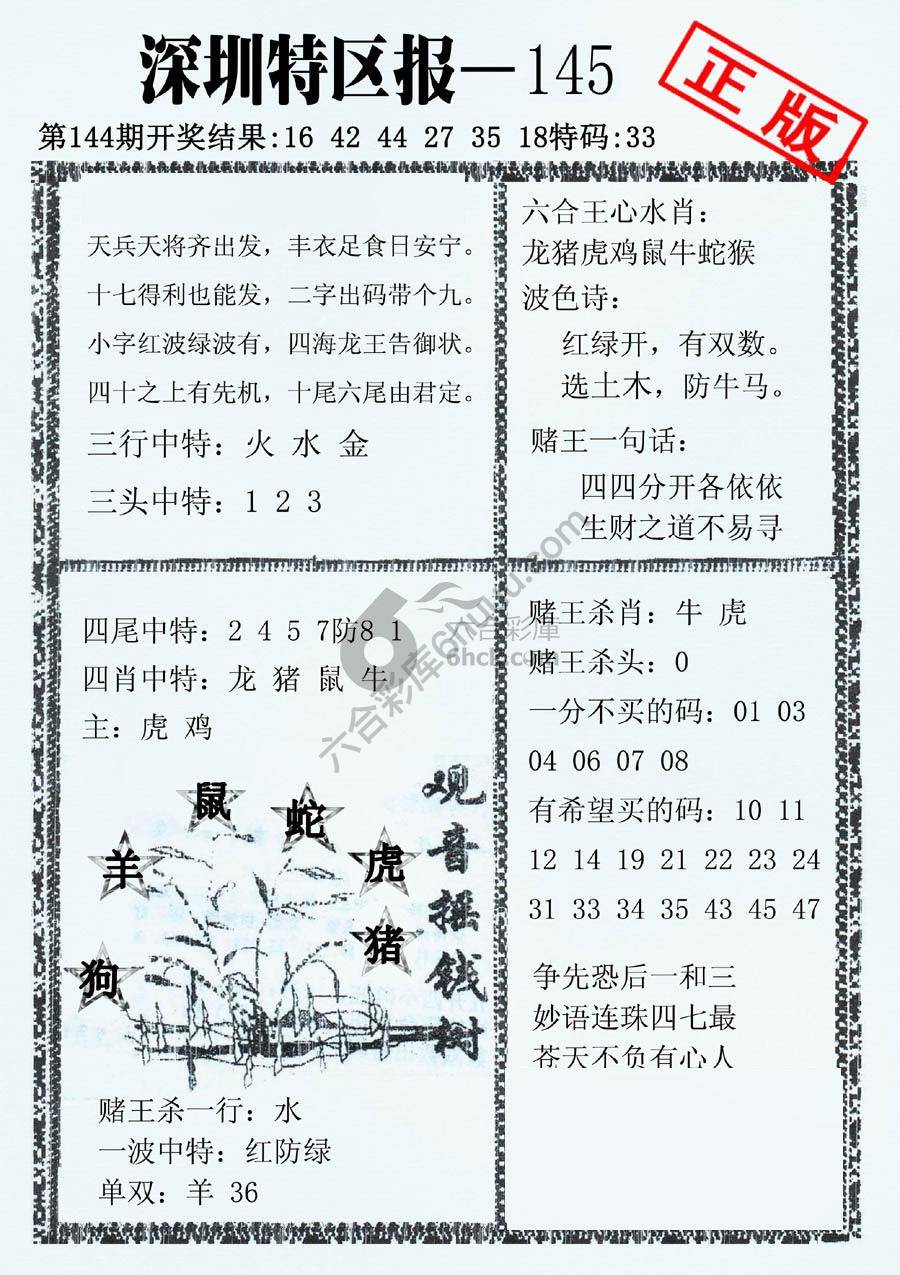 深圳特区报—145
正版
第144期开奖结果:16 42 44 27 35 18特码:33
天兵天将齐出发，丰衣足食日安宁。
十七得利也能发，二字出码带个九。
小字红波绿波有，四海龙王告御状。
四十之上有先机，十尾六尾由君定。
三行中特：火 水 金
三头中特：1 2 3
六合王心水肖：
龙猪虎鸡鼠牛蛇猴
波色诗：
红绿开，有双数。
选土木，防牛马。
赌王一句话：
四四分开各依依
生财之道不易寻
四尾中特：2 4 5 7防8 1
四肖中特：龙 猪 鼠 牛
主：虎 鸡
鼠
蛇
羊
虎
猪
狗
观音摇钱树
赌王杀一行：水
一波中特：红防绿
单双：羊 36
赌王杀肖：牛 虎
赌王杀头：0
一分不买的码：01 03
04 06 07 08
有希望买的码：10 11
12 14 19 21 22 23 24
31 33 34 35 43 45 47
争先恐后一和三
妙语连珠四七最
苍天不负有心人
六合彩库6hutu.com
六合彩庫